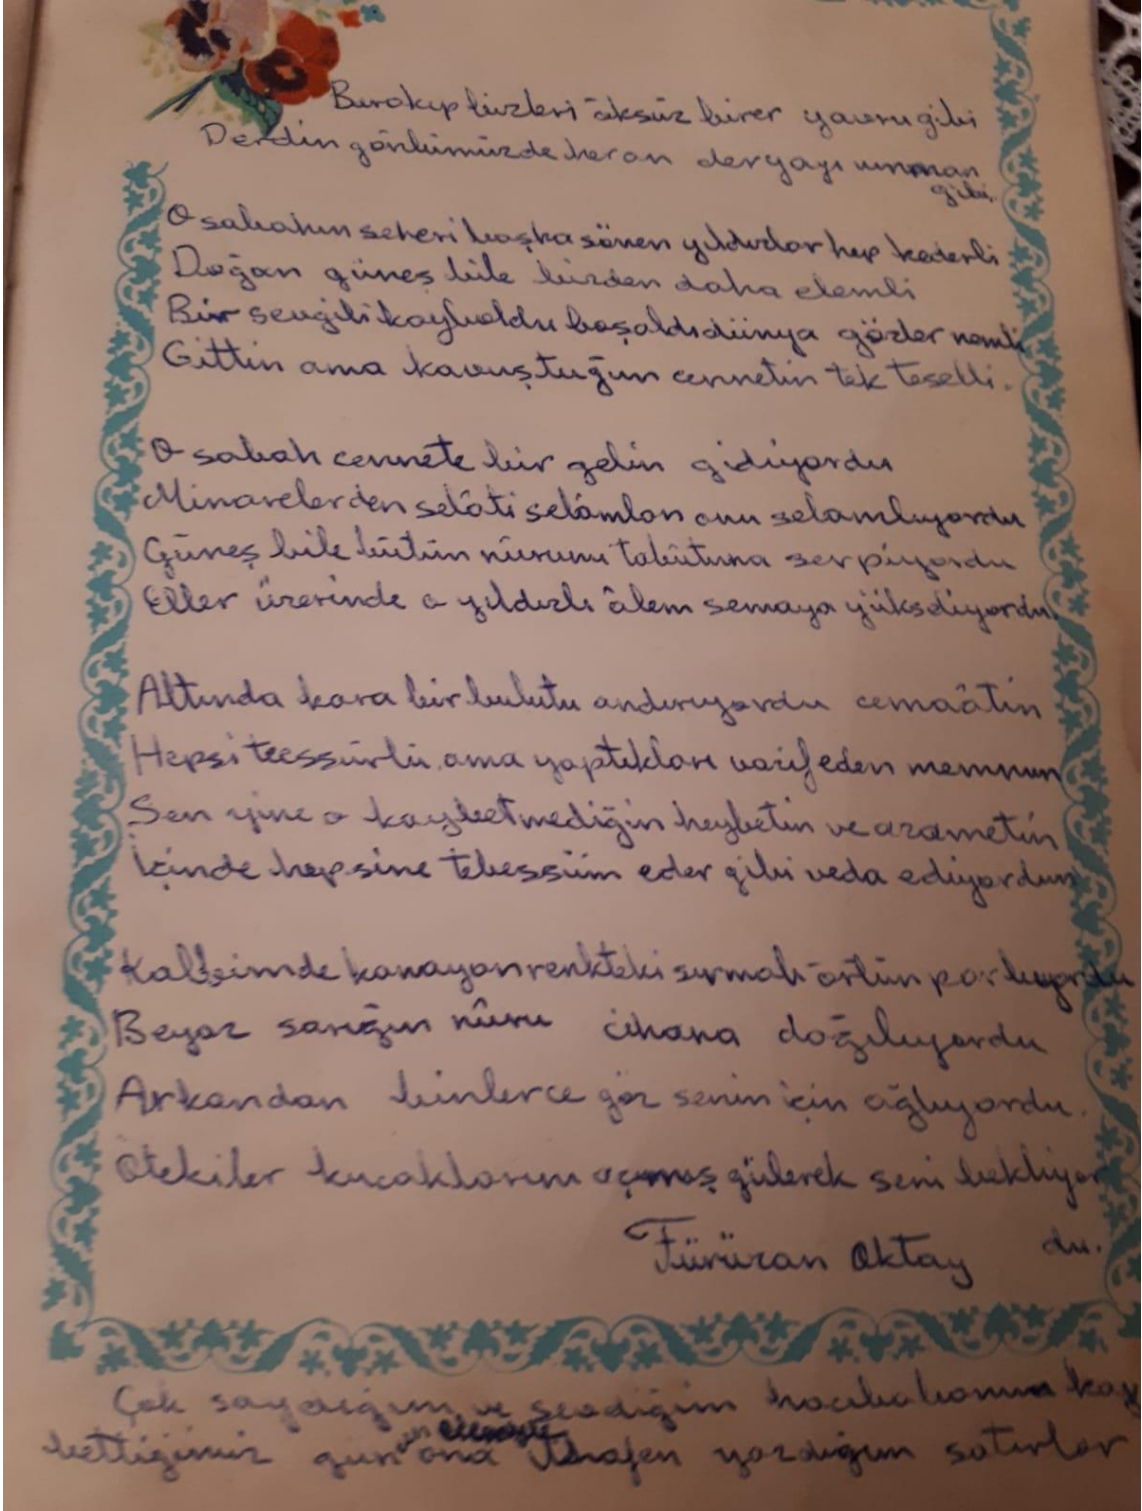 Bırakıp bizleri öksüz birer yavru gibi
Derdin gönlümüzde heran deryayı umman
gibi.
O sabahın seheri başka sönen yıldızlar hep kederli
Doğan güneş bile bizden daha elemli
Bir sevgili kayboldu boşaldı dünya gözler nemli
Gittin ama kavuştuğun cennetin tek teselli.
O sabah cennete bir gelin gidiyordu
Minarelerden selâti selâmlan onu selamlıyordu
Güneş bile bütün nûrunu tabûtuna serpiyordu
Eller üzerinde o yıldızlı âlem semaya yükseliyordu.
Altında kara bir bulutu andırıyordu cemaâtin
Hepsi teessürlü, ama yaptıkları vazifeden memnun
Sen yine o kaybetmediğin heybetin ve azametin
İçinde hepsine tebessüm eder gibi veda ediyordun
Kalbimde kanayan renkteki sırmalı örtün parlıyordu
Beyaz sarığın nûru cihana doğuluyordu
Arkandan binlerce göz senin için ağlıyordu.
Ötekiler kucaklarını açmış gülerek seni bekliyor
du.
Fürüzan Oktay
Çok saydığım ve sevdiğim hacıbabamı kay
bettiğimiz gün ona ithafen yazdığım satırlar